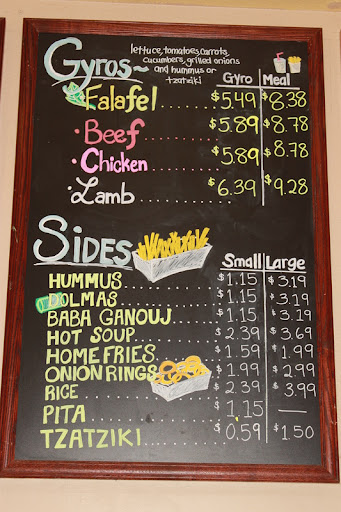 Gyros~
lettuce, tomatoes, carrots,
cucumbers, grilled onions
and hummus or
tzatziki
Gyro Meal
Falafel ........ $5.49 $8.38
• Beef ........ $5.89 $8.78
• Chicken ........ $5.89 $8.78
• Lamb ........ $6.39 $9.28
SIDES
Small Large
HUMMUS ........ $1.15 $3.19
DOLMAS ........ $1.15 $3.19
BABA GANOUJ ........ $1.15 $3.19
HOT SOUP ........ $2.39 $3.69
HOME FRIES ........ $1.59 $1.99
ONION RINGS ........ $1.99 $2.99
RICE ........ $2.39 $3.99
PITA ........ 1.15 —
TZATZIKI ........ $0.59 $1.50